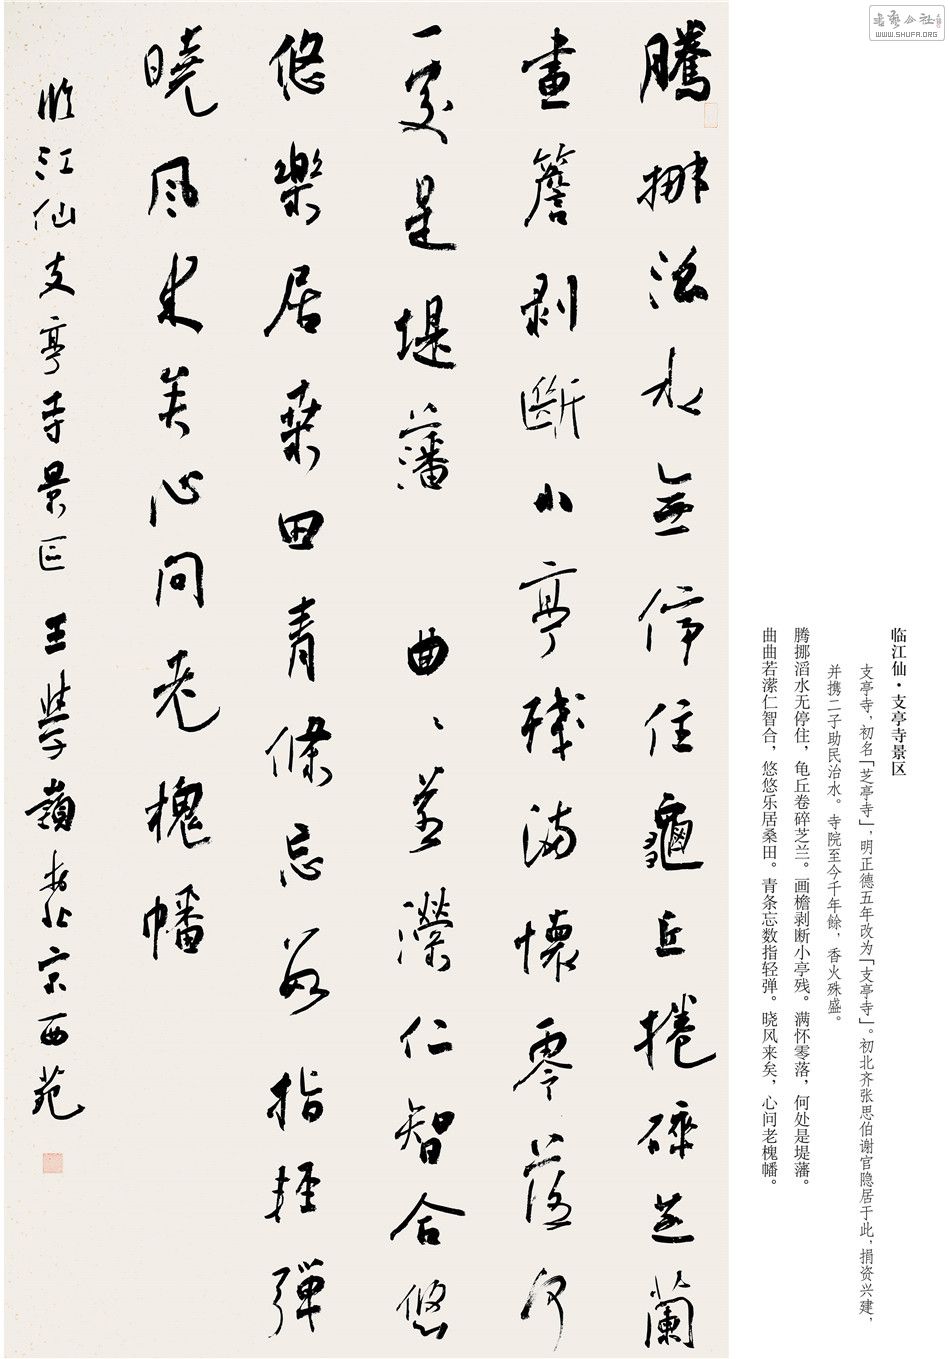 书艺公社
WWW.SHUFA.ORG
临江仙·支亭寺景区
支亭寺，初名「芝亭寺」，明正德五年改为「支亭寺」。初北齐张思伯谢官隐居于此，捐资兴建，
并携二子助民治水。寺院至今千年餘，香火殊盛。
腾挪滔水无停住，龟丘卷碎芝兰。画檐剥断小亭残。满怀零落，何处是堤藩。
曲曲若潆仁智合，悠悠乐居桑田。青条忘数指轻弹。晓风来矣，心问老槐幡。
騰挪滔水無停住龜丘捲碎芝蘭
畫簷剥斷小亭殘滿懷零落何
處是堤藩 曲〻若瀠仁智合悠
悠樂居桑田青條忘數指輕彈
曉風来矣心問老槐幡
临江仙支亭寺景区 王學嶺於北京西苑